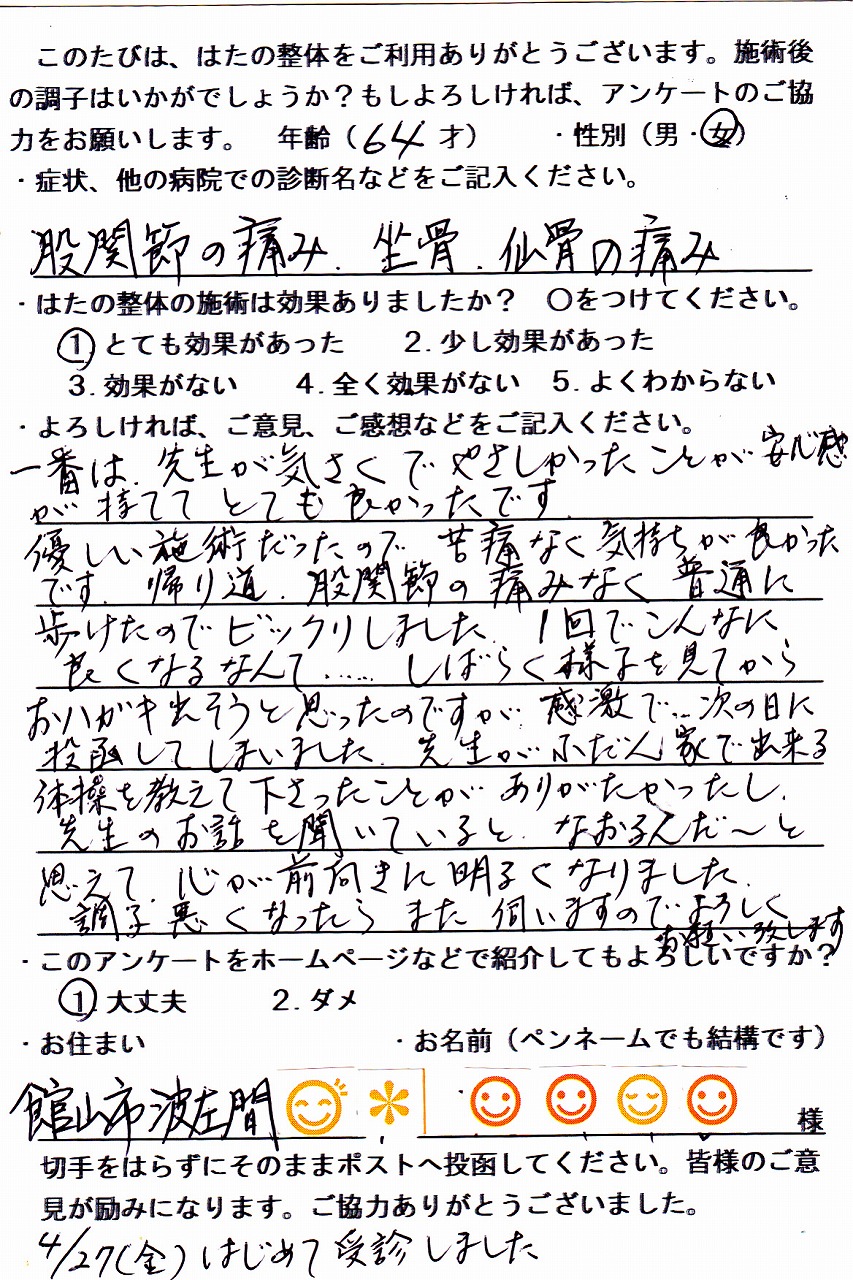 このたびは、はたの整体をご利用ありがとうございます。施術後
の調子はいかがでしょうか？もしよろしければ、アンケートのご協
力をお願いします。　年齢（64才）　・性別（男・女）
・症状、他の病院での診断名などをご記入ください。
股関節の痛み、坐骨、仙骨の痛み
・はたの整体の施術は効果ありましたか？　〇をつけてください。
1.とても効果があった　2.少し効果があった
3.効果がない　4.全く効果がない　5.よくわからない
・よろしければ、ご意見、ご感想などをご記入ください。
一番は、先生が気さくでやさしかったことが安心感
が持ててとても良かったです。
優しい施術だったので、苦痛なく気持ちが良かった
です。帰り道、股関節の痛みなく普通に
歩けたのでビックリしました。1回でこんなに
良くなるなんて……しばらく様子を見てから
おハガキ出そうと思ったのですが、感激で…次の日に
投函してしまいました。先生がふだん家で出来る
体操を教えて下さったことがありがたかったし、
先生のお話を聞いていると、なおるんだ〜と
思えて、心が前向きに明るくなりました。
調子悪くなったらまた伺いますのでよろしく
お願い致します
・このアンケートをホームページなどで紹介してもよろしいですか？
1.大丈夫　2.ダメ
・お住まい　・お名前（ペンネームでも結構です）
館山市波左間　様
切手をはらずにそのままポストへ投函してください。皆様のご意
見が励みになります。ご協力ありがとうございました。
4/27(金)はじめて受診しました